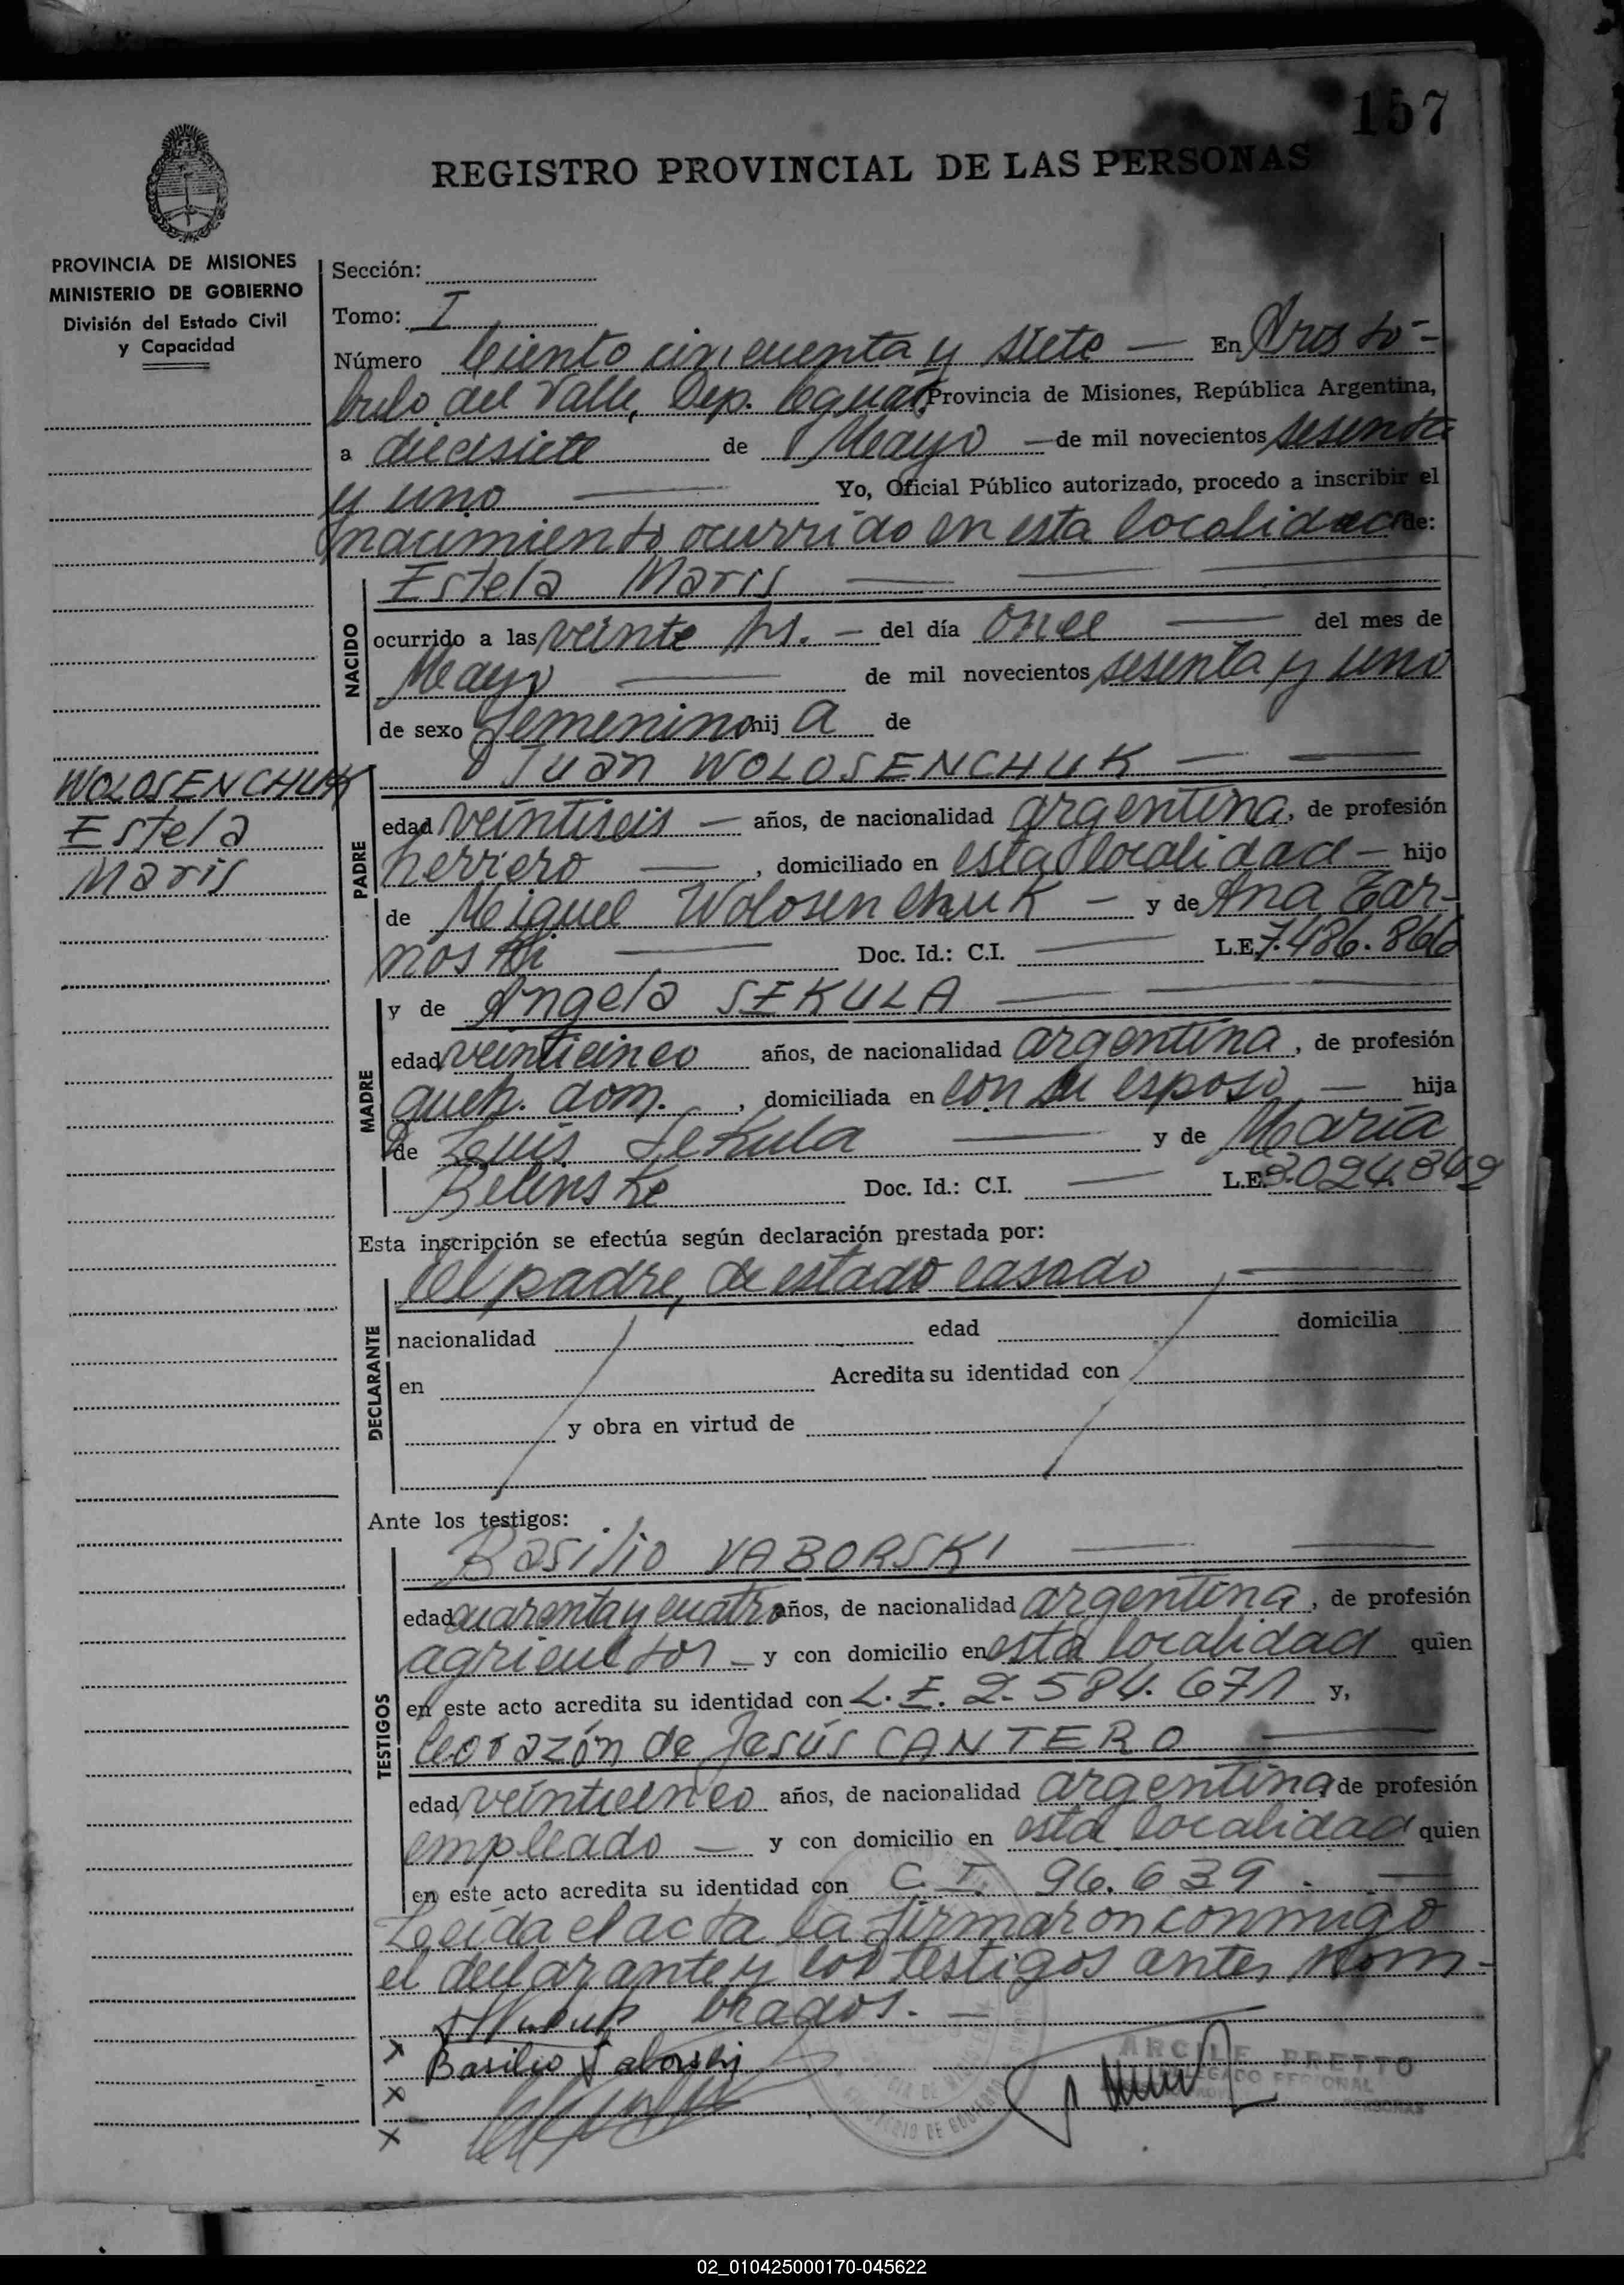 157
REGISTRO PROVINCIAL DE LAS PERSONAS
PROVINCIA DE MISIONES
MINISTERIO DE GOBIERNO
División del Estado Civil
y Capacidad
Sección:
Tomo: I
Número Ciento cincuenta y siete — En Aristó-
bulo del Valle, Dep. Cguás, Provincia de Misiones, República Argentina,
a diecisiete de Mayo — de mil novecientos sesenta
y uno — Yo, Oficial Público autorizado, procedo a inscribir el
nacimiento ocurrido en esta localidad de:
NACIDO
Estela Maris — — —
ocurrido a las veinte hs. — del día once — del mes de
Mayo — de mil novecientos sesenta y uno
de sexo femenino hij a de
WOLOSENCHUK
Estela
Maris
PADRE
Juan WOLOSENCHUK — —
edad veintiseis — años, de nacionalidad argentina, de profesión
herrero — , domiciliado en esta localidad — hijo
de Miguel Wolosenchuk — y de Ana Tar-
noski — Doc. Id.: C.I. — L.E. 7.486.866
MADRE
y de Angela SEKULA — —
edad veinticinco años, de nacionalidad argentina, de profesión
queh. dom. , domiciliada en con su esposo — hija
de Luis Sekula — y de María
Belinske Doc. Id.: C.I. — L.E. 3.024.842
Esta inscripción se efectúa según declaración prestada por:
DECLARANTE
El padre, de estado casado —
nacionalidad edad domicilia
en Acredita su identidad con
y obra en virtud de
Ante los testigos:
TESTIGOS
Basilio YABORSKI — —
edad cuarenta y cuatro años, de nacionalidad argentina, de profesión
agricultor — y con domicilio en esta localidad quien
en este acto acredita su identidad con L.E. 2.584.671 y,
Corazón de Jesús CANTERO —
edad veinticinco años, de nacionalidad argentina de profesión
empleado — y con domicilio en esta localidad quien
en este acto acredita su identidad con C.I. 96.639. —
Leída el acta la firmaron conmigo
el declarante y los testigos antes nom-
brados. —
x Basilio Yaborski
x
x
PRETTO
DELEGADO REGIONAL
02_010425000170-045622